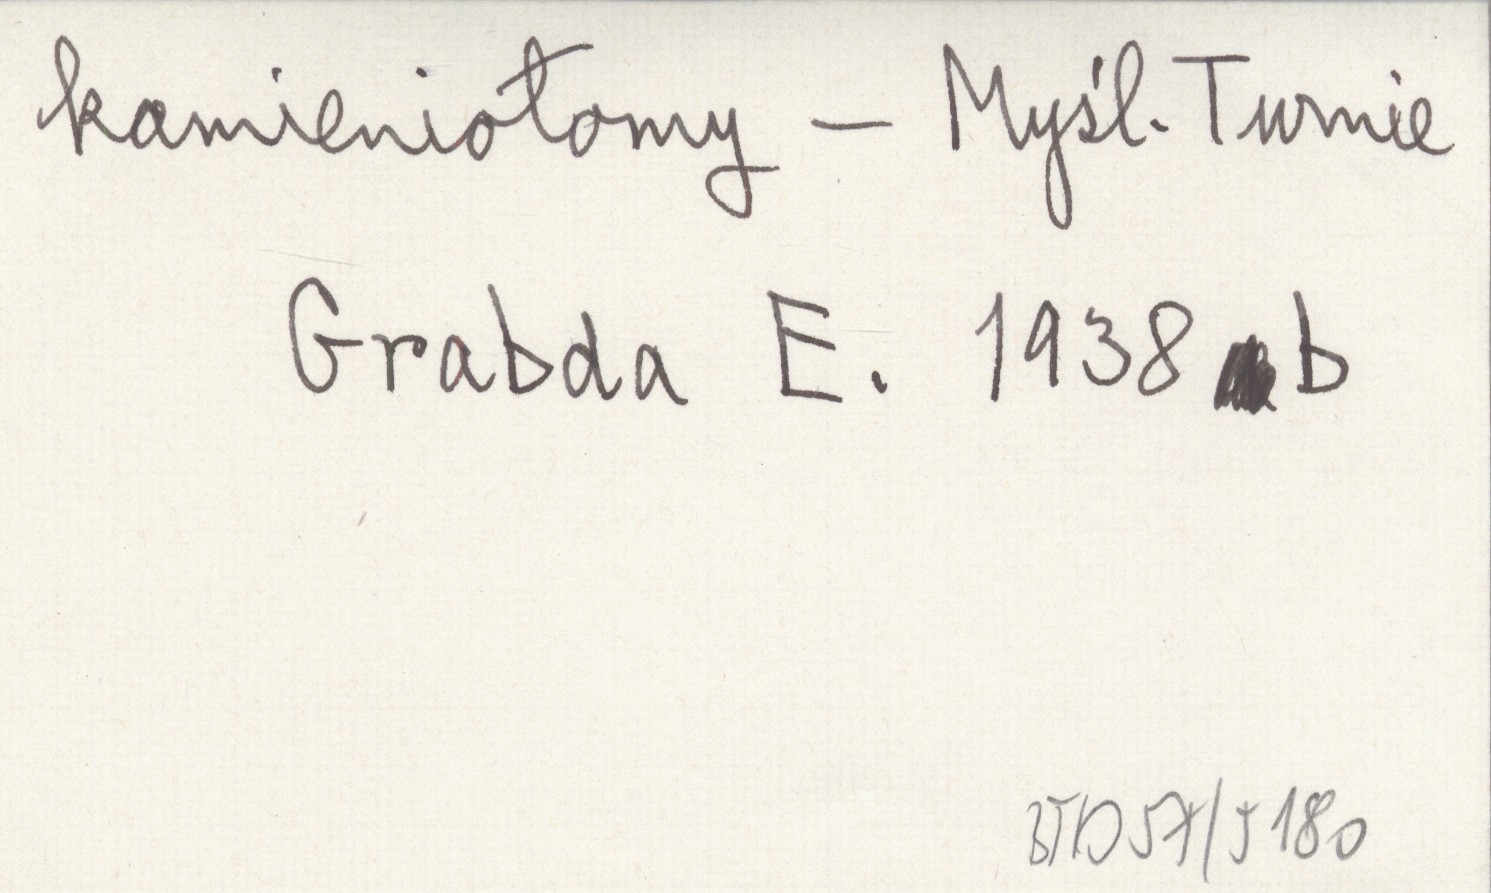 kamieniołomy – Myśl. Turnie
Grabda E. 1938 b
BTD 57/J 180